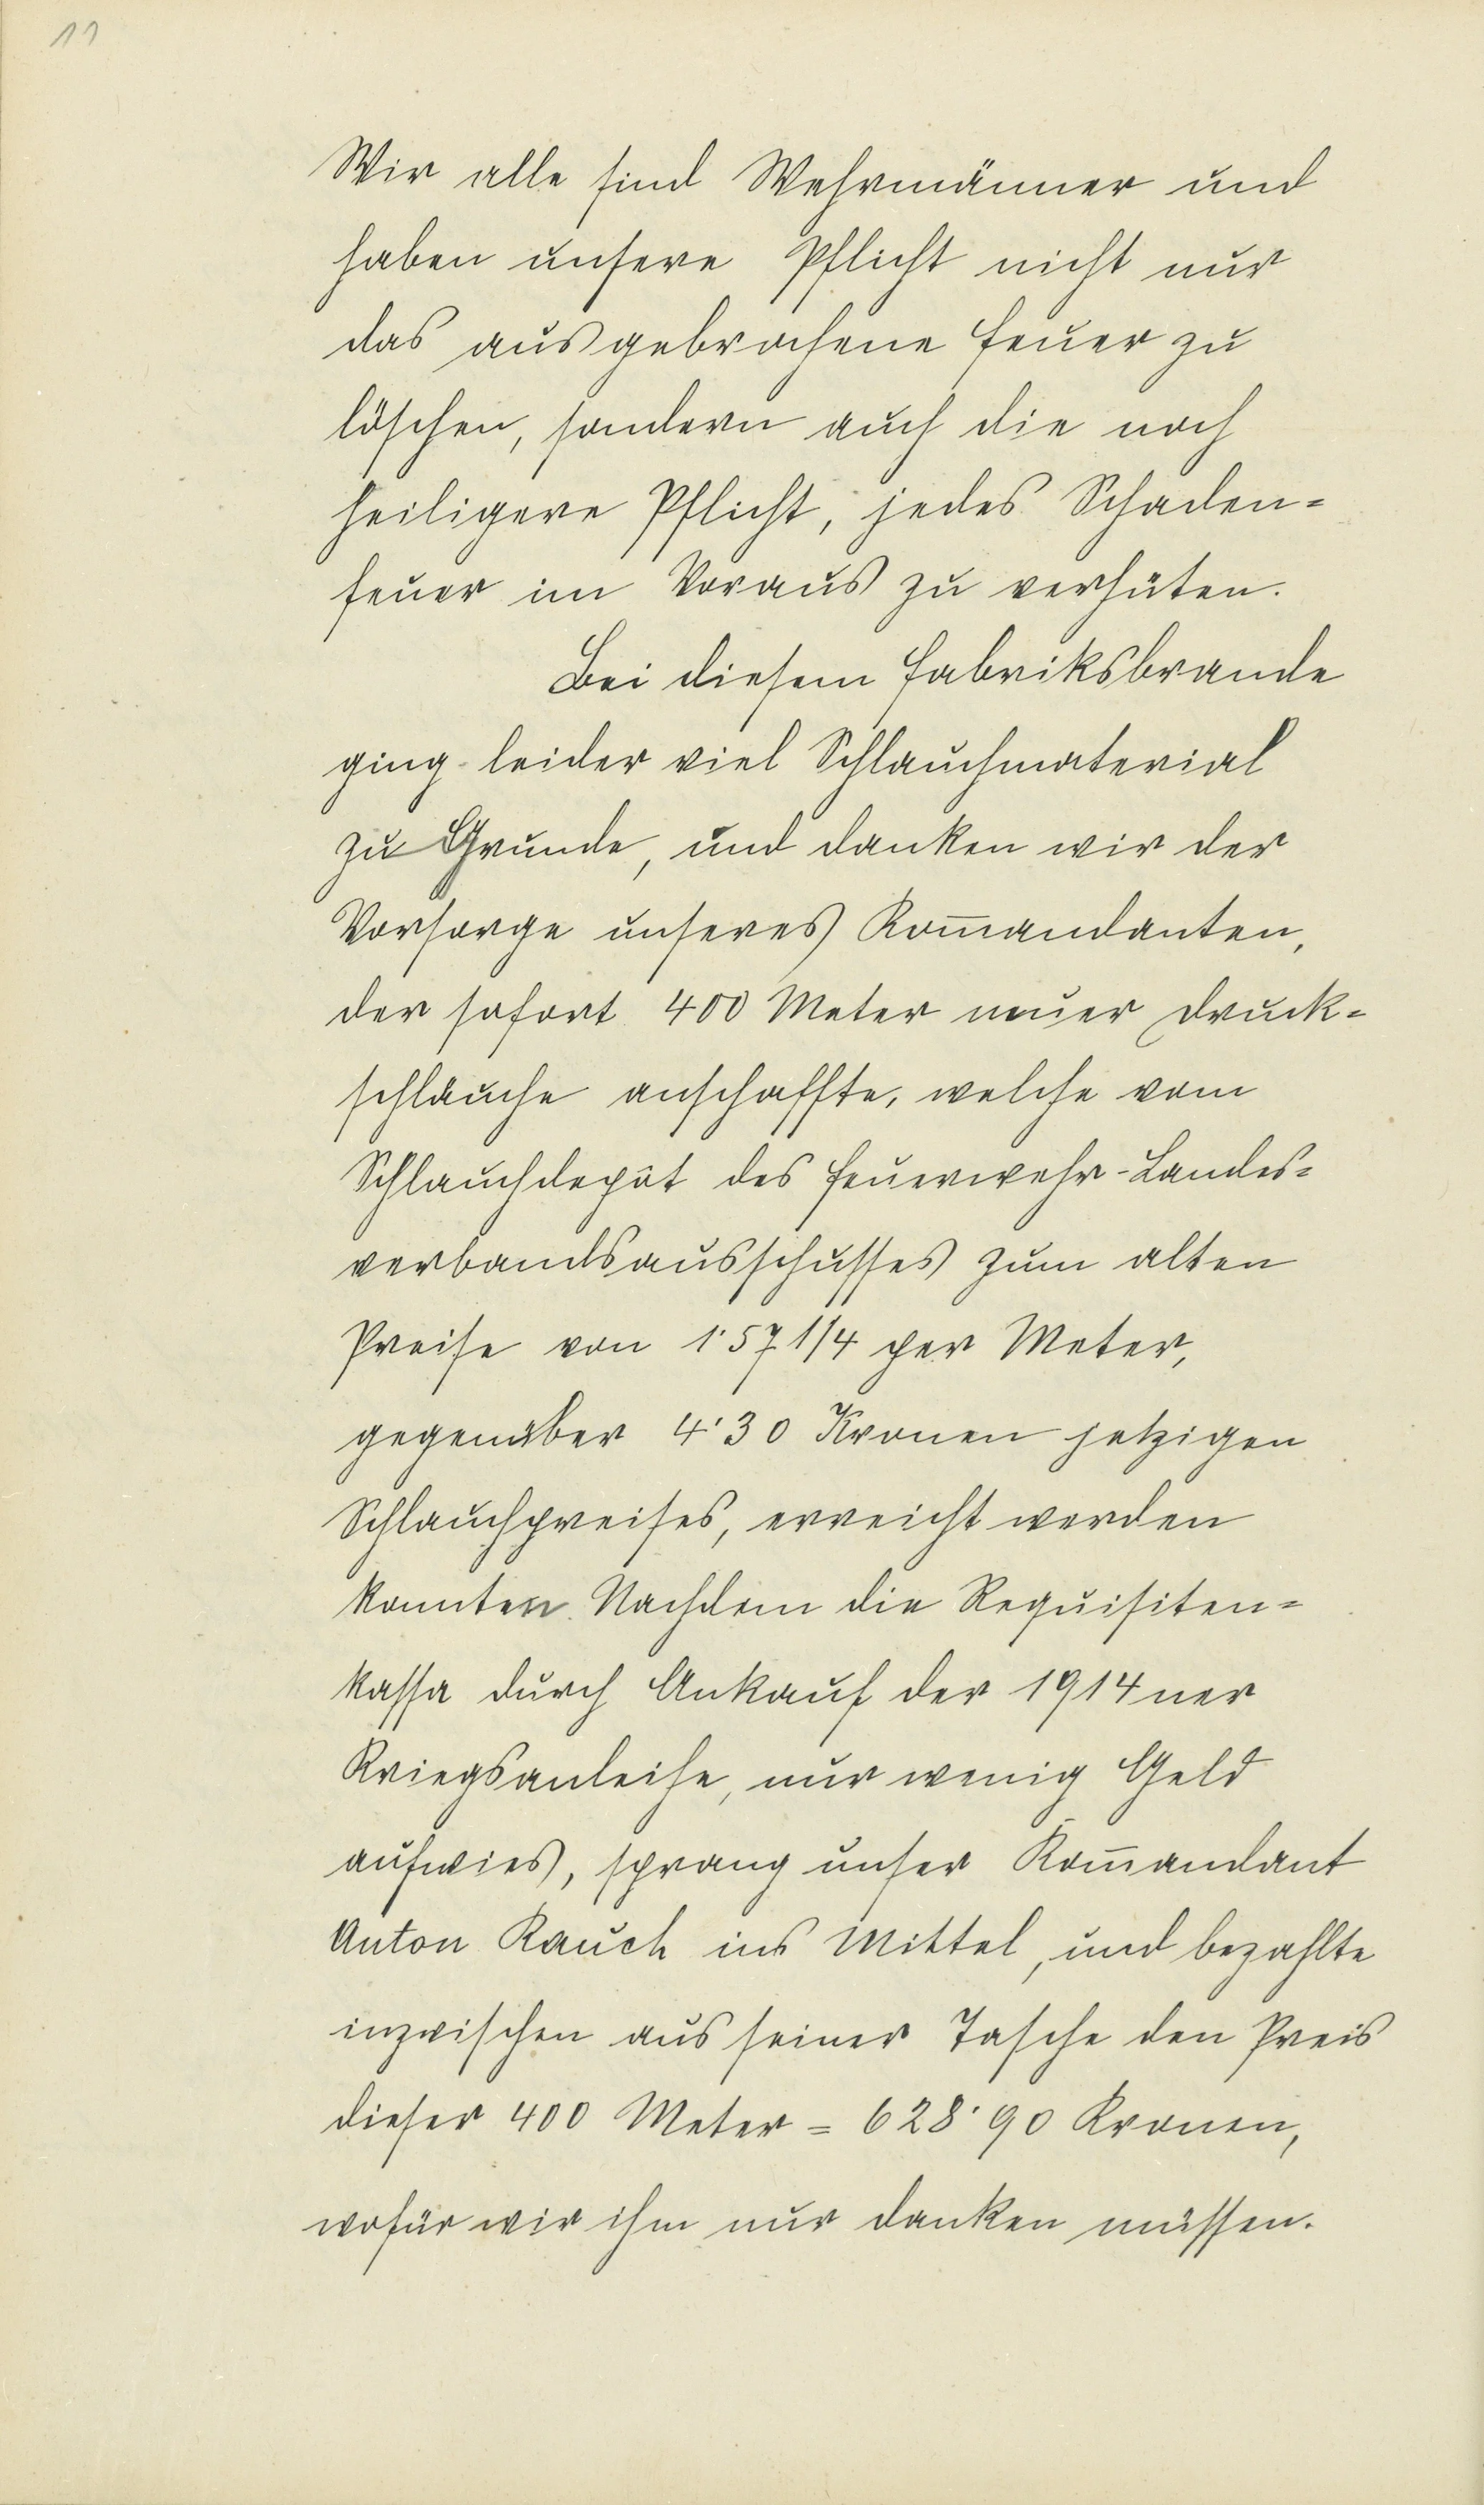 11
Wir alle sind Wehrmänner und
haben unsere Pflicht nicht nur
das ausgebrochene Feuer zu
löschen, sondern auch die noch
heiligere Pflicht, jedes Schaden-
feuer im Voraus zu verhüten.
Bei diesem Fabriksbrande
ging leider viel Schlauchmaterial
zu Grunde, und danken wir der
Vorsorge unseres Kom̅andanten,
der sofort 400 Meter neuer Druck-
schläuche anschaffte, welche vom
Schlauchdepôt des Feuerwehr-Landes-
verbandsausschusses zum alten
Preise von 1·57 1/4 per Meter,
gegenüber 4·30 Kronen jetzigen
Schlauchpreises, erreicht werden
konnten. Nachdem die Requisiten-
kassa durch Ankauf der 1914ner
Kriegsanleihe, nur wenig Geld
aufwies, sprang unser Kom̅andant
Anton Rauch ins Mittel, und bezahlte
inzwischen aus seiner Tasche den Preis
dieser 400 Meter = 628·90 Kronen,
wofür wir ihm nur danken müssen.